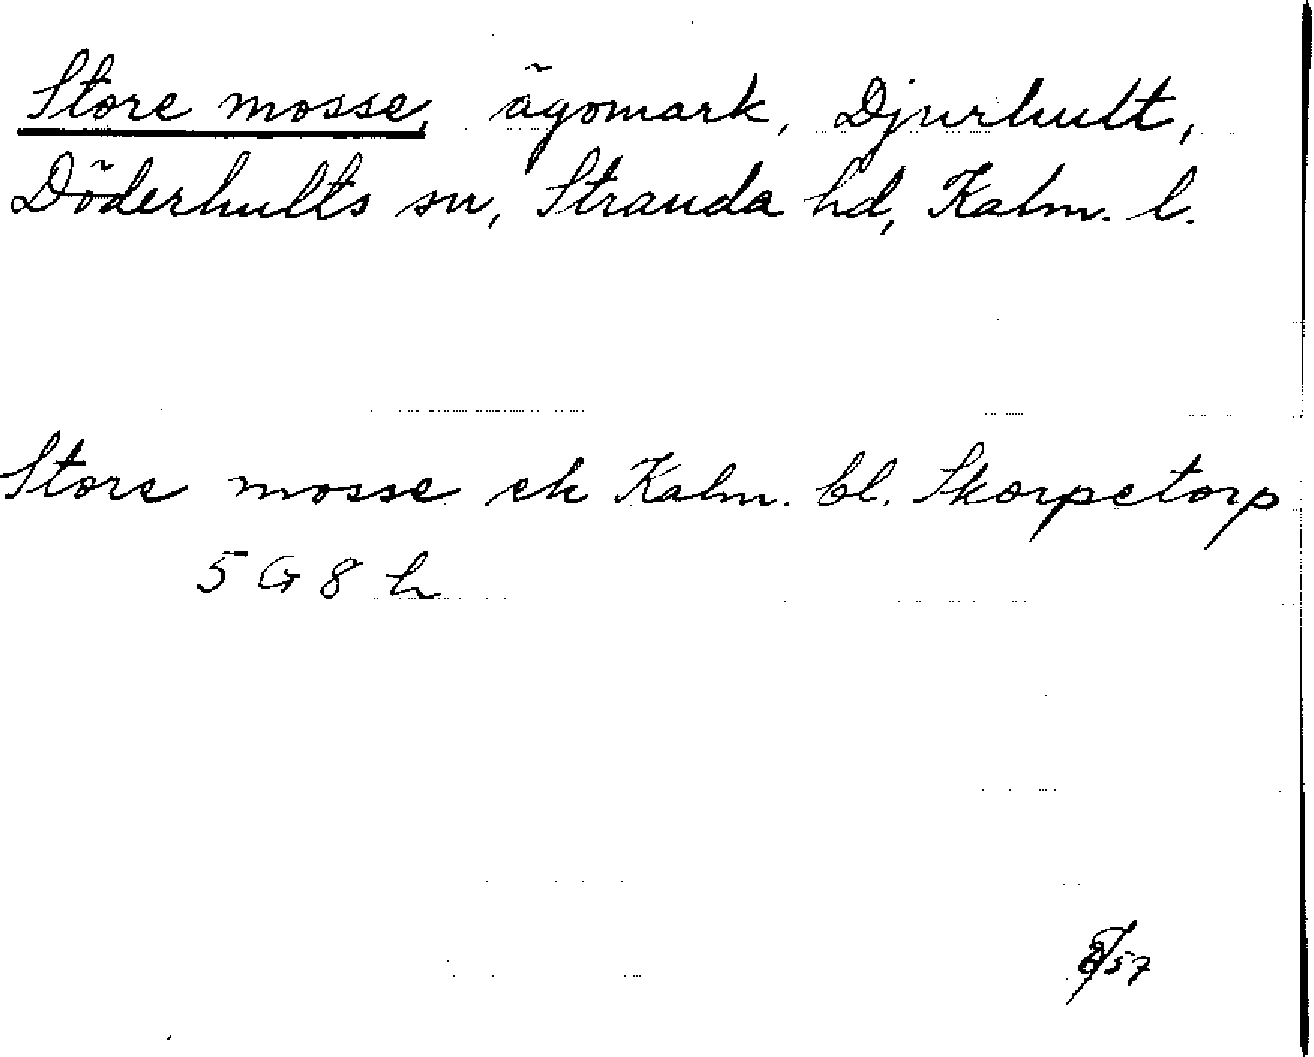 Store mosse, ägomark, Djurhult,
Döderhults sn, Stranda hd, Kalm. l.
Store mosse ek Kalm. bl. Skorpetorp
5 G 8 h
57